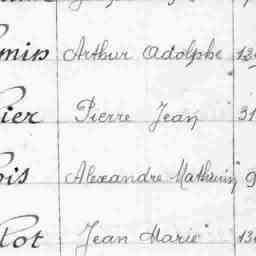 min Arthur Adolphe 13
ier Pierre Jean 31
ois Alexandre Mathurin 9
lot Jean Marie 13